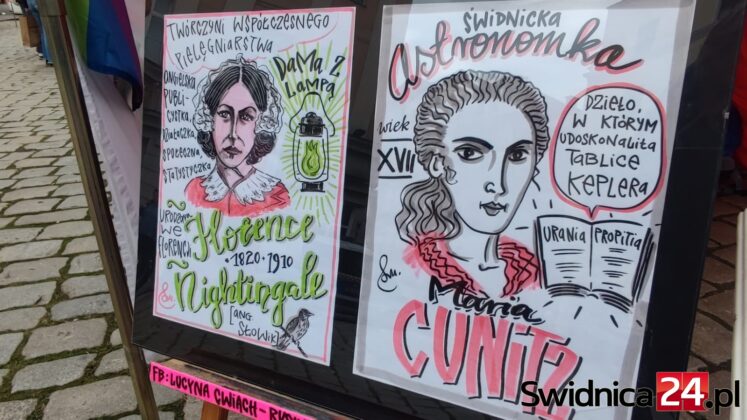 TWÓRCZYNI WSPÓŁCZESNEGO
PIELĘGNIARSTWA
ANGIELSKA
PUBLI-
CYSTKA,
DZIAŁACZKA
SPOŁECZNA,
STATYSTYCZKA
DAMA Z
LAMPĄ
URODZONA
WE
FLORENCJI
Florence
•1820•1910
Nightingale
[ANG
SŁOWIK]
ŚWIDNICKA
Astronomka
wiek
XVII
DZIEŁO,
W KTÓRYM
UDOSKONALIŁA
TABLICE
KEPLERA
URANIA PROPITIA
Maria
CUNITZ
FB: LUCYNA ĆWIĄCH -
Swidnica24.pl